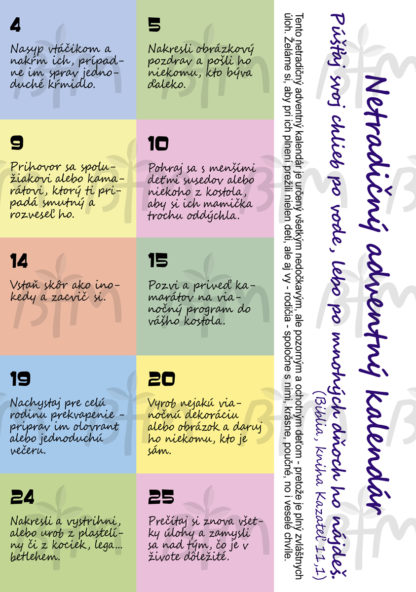 4
Nasyp vtáčikom a
nakŕm ich, prípad-
ne im sprav jedno-
duché kŕmidlo.
5
Nakresli obrázkový
pozdrav a pošli ho
niekomu, kto býva
ďaleko.
9
Prihovor sa spolu-
žiakovi alebo kama-
rátovi, ktorý ti pri-
padá smutný a
rozvesel ho.
10
Pohraj sa s menšími
deťmi susedov alebo
niekoho z kostola,
aby si ich mamička
trochu oddýchla.
14
Vstaň skôr ako ino-
kedy a zacvič si.
15
Pozvi a priveď ka-
marátov na via-
nočný program do
vášho kostola.
19
Nachystaj pre celú
rodinu prekvapenie -
priprav im olovrant
alebo jednoduchú
večeru.
20
Vyrob nejakú via-
nočnú dekoráciu
alebo obrázok a daruj
ho niekomu, kto je
sám.
24
Nakresli a vystrihni,
alebo urob z plasteli-
ny či z kociek, lega...
betlehem.
25
Prečítaj si znova všet-
ky úlohy a zamysli
sa nad tým, čo je v
živote dôležité.
Netradičný adventný kalendár
Púšťaj svoj chlieb po vode, lebo po mnohých dňoch ho nájdeš.
(Biblia, kniha Kazateľ 11,1)
Tento netradičný adventný kalendár je určený všetkým nedočkavým, ale pozorným a ochotným deťom - pretože je plný zvláštnych
úloh. Želáme si, aby pri ich plnení prežili nielen deti, ale aj vy - rodičia - spoločne s nimi, krásne, poučné, no i veselé chvíle.